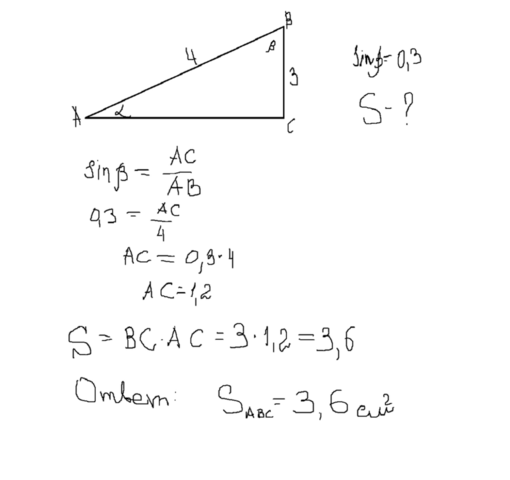 B
β
4
sinβ=0,3
3
S-?
A
α
C
sinβ = AC/AB
0,3 = AC/4
AC = 0,3·4
AC=1,2
S = BC·AC = 3·1,2 = 3,6
Ответ: S_ABC = 3,6 см²